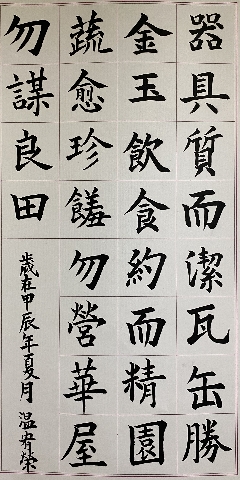 器具質而潔瓦缶勝
金玉飲食約而精園
蔬愈珍饈勿營華屋
勿謀良田
歲在甲辰年夏月 溫宥榮